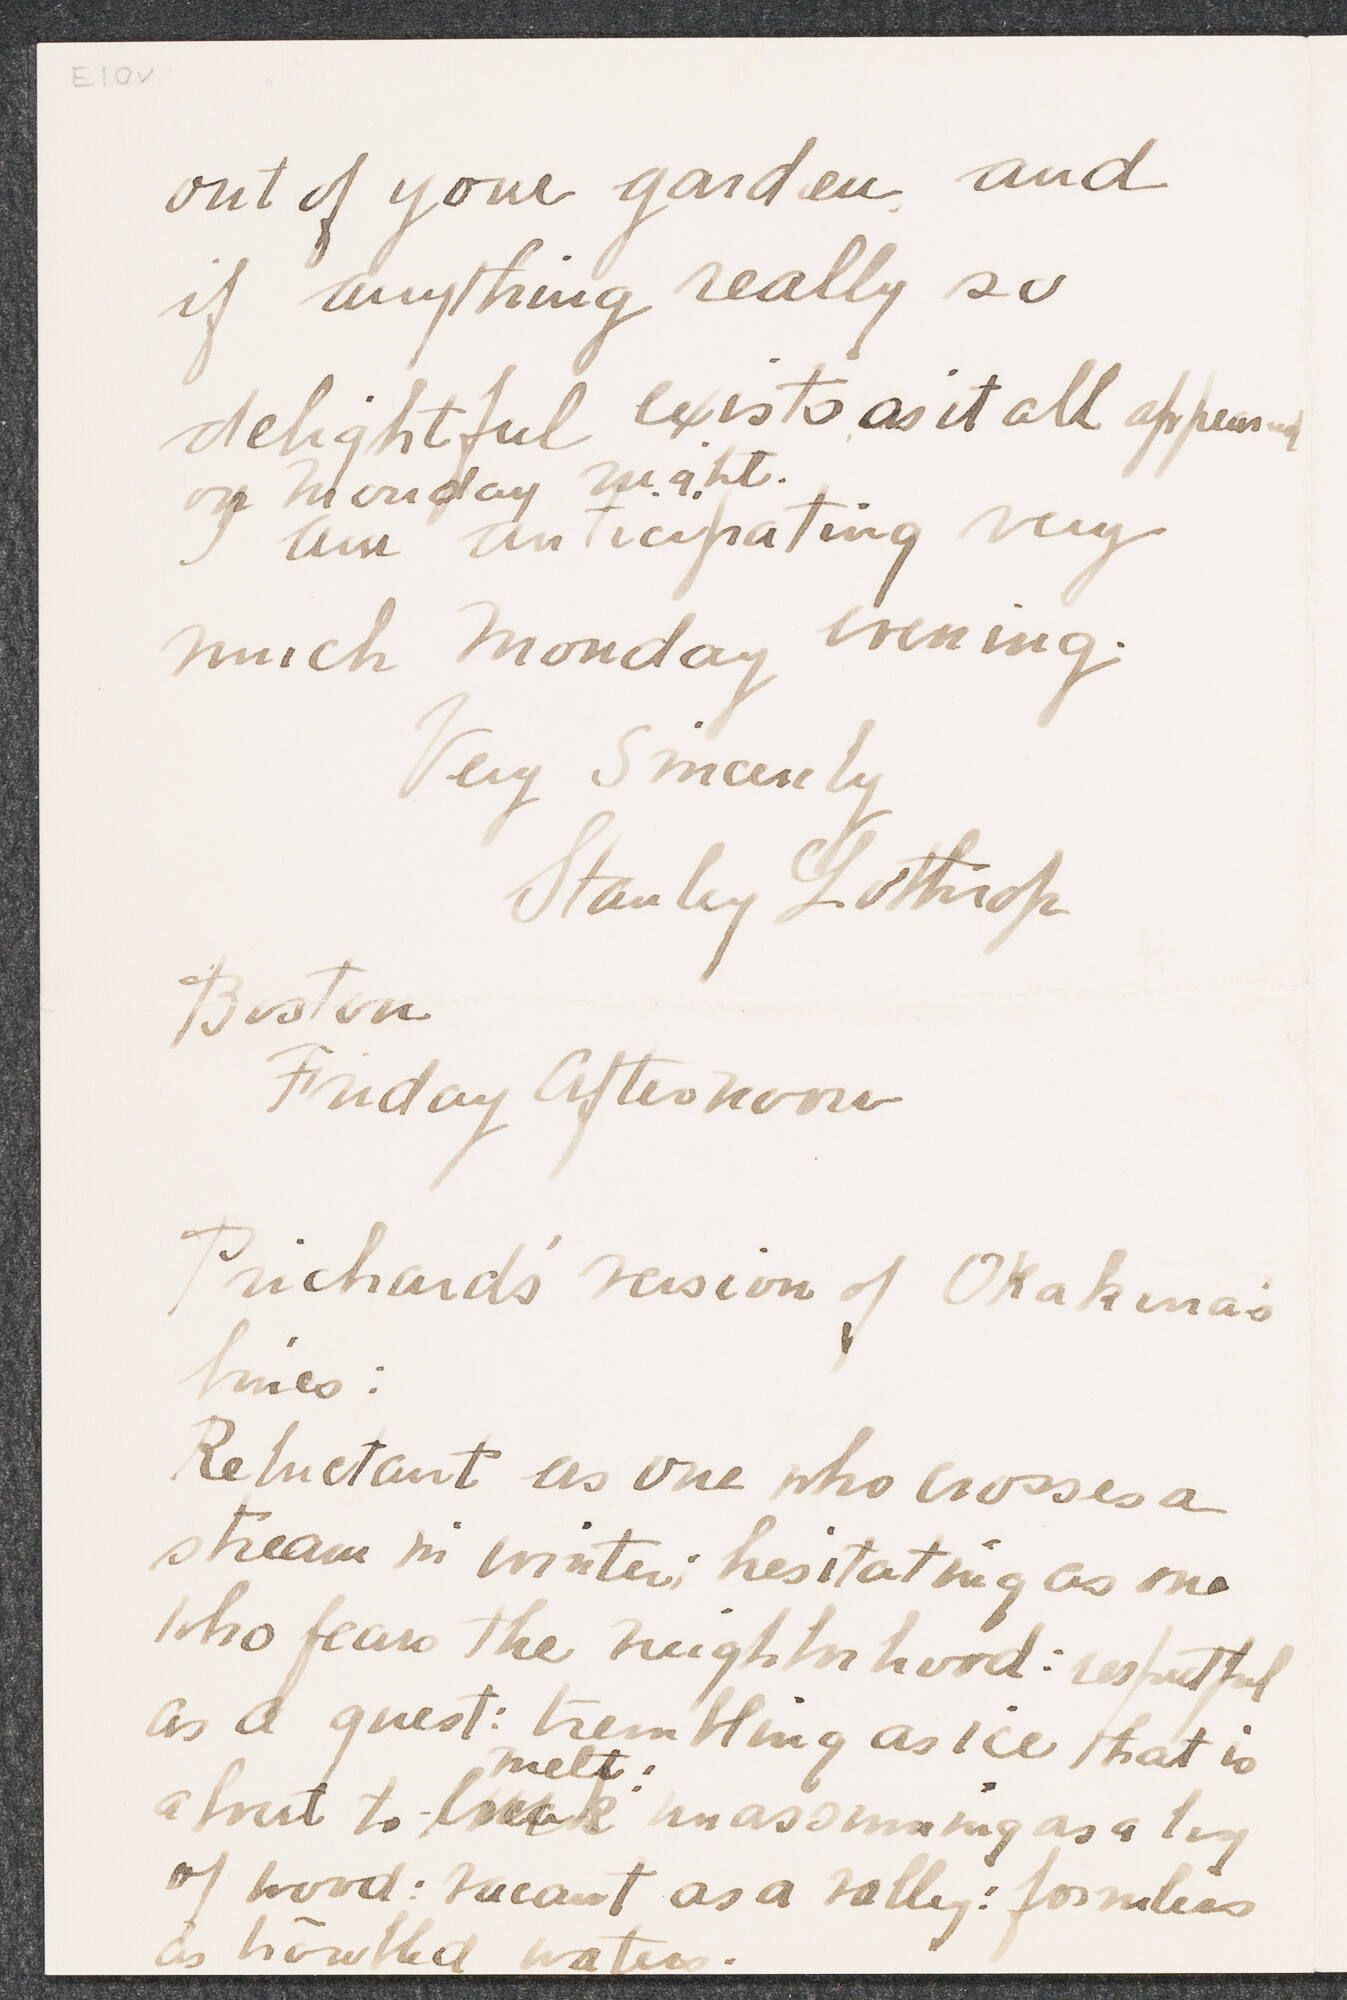 E10v
out of your garden, and
if anything really so
delightful exists, as it all appeared
on Monday night.
I am anticipating very
much Monday evening.
Very Sincerely
Stanley Lothrop
Boston
Friday Afternoon
Prichard's version of Okakura's
lines:
Reluctant as one who crosses a
stream in winter; hesitating as one
who fears the neighborhood: respectful
as a guest: trembling as ice that is
melt:
about to break unassuming as a log
of wood: vacant as a valley: formless
as troubled waters.